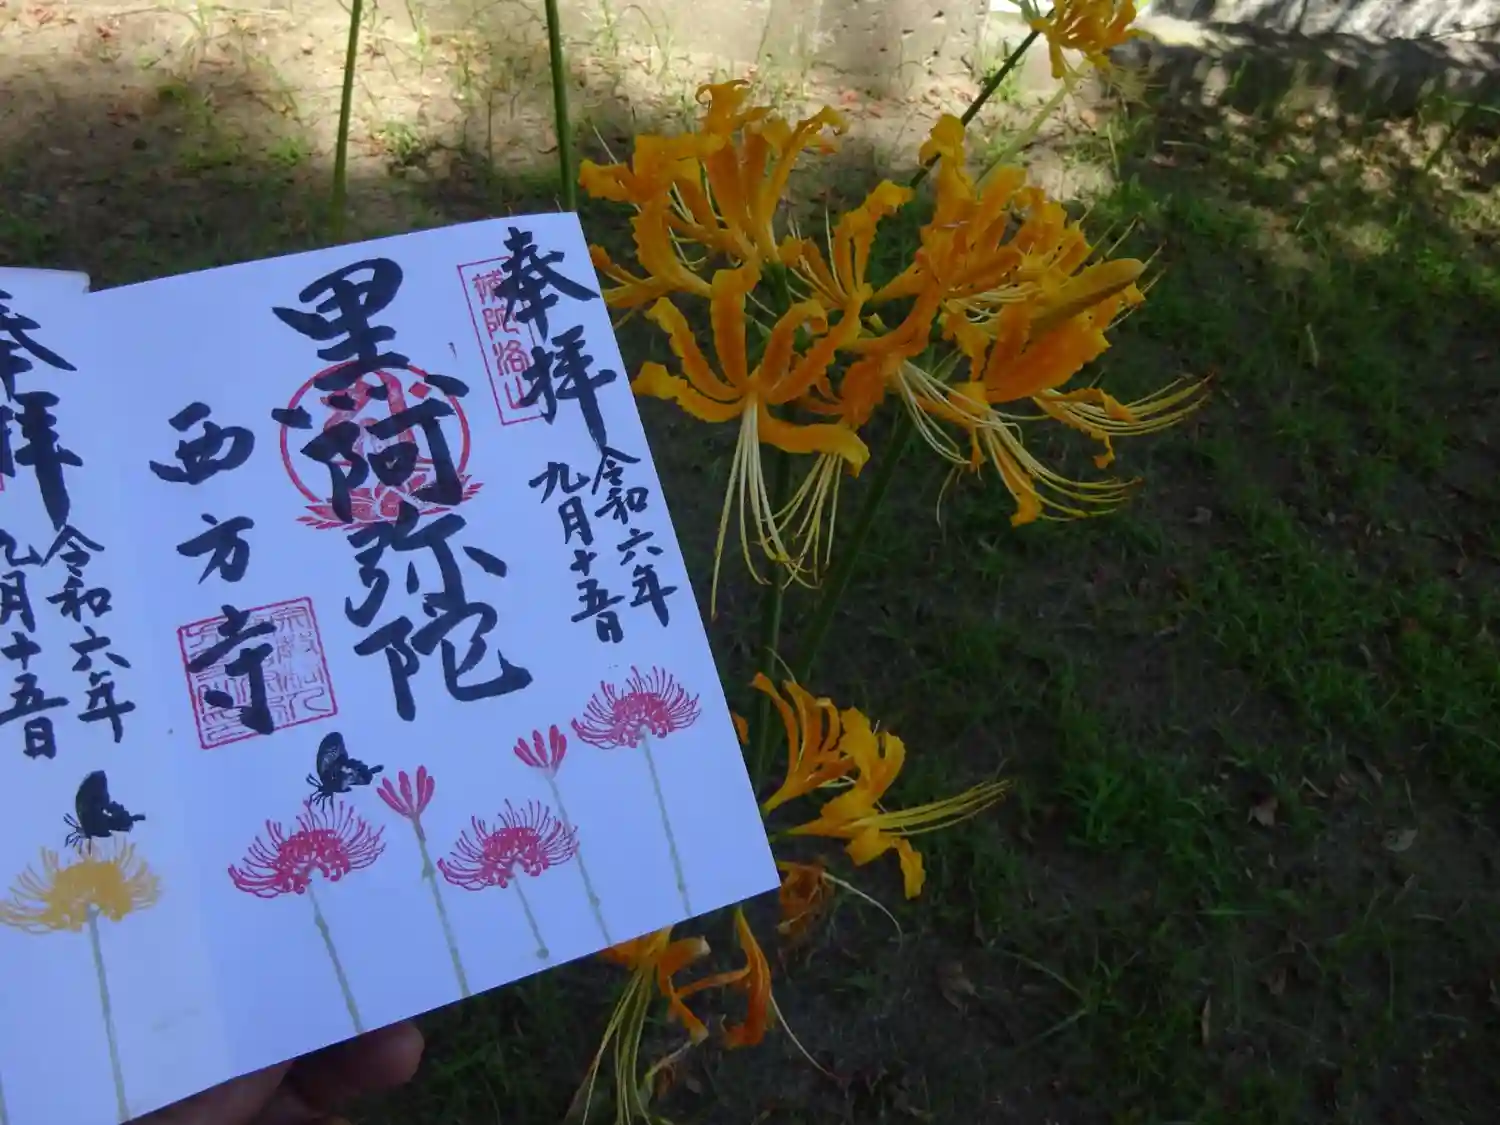 奉拝
令和六年
九月十五日
補陀洛山
黒阿弥陀
西方寺
奉拝
令和六年
九月十五日